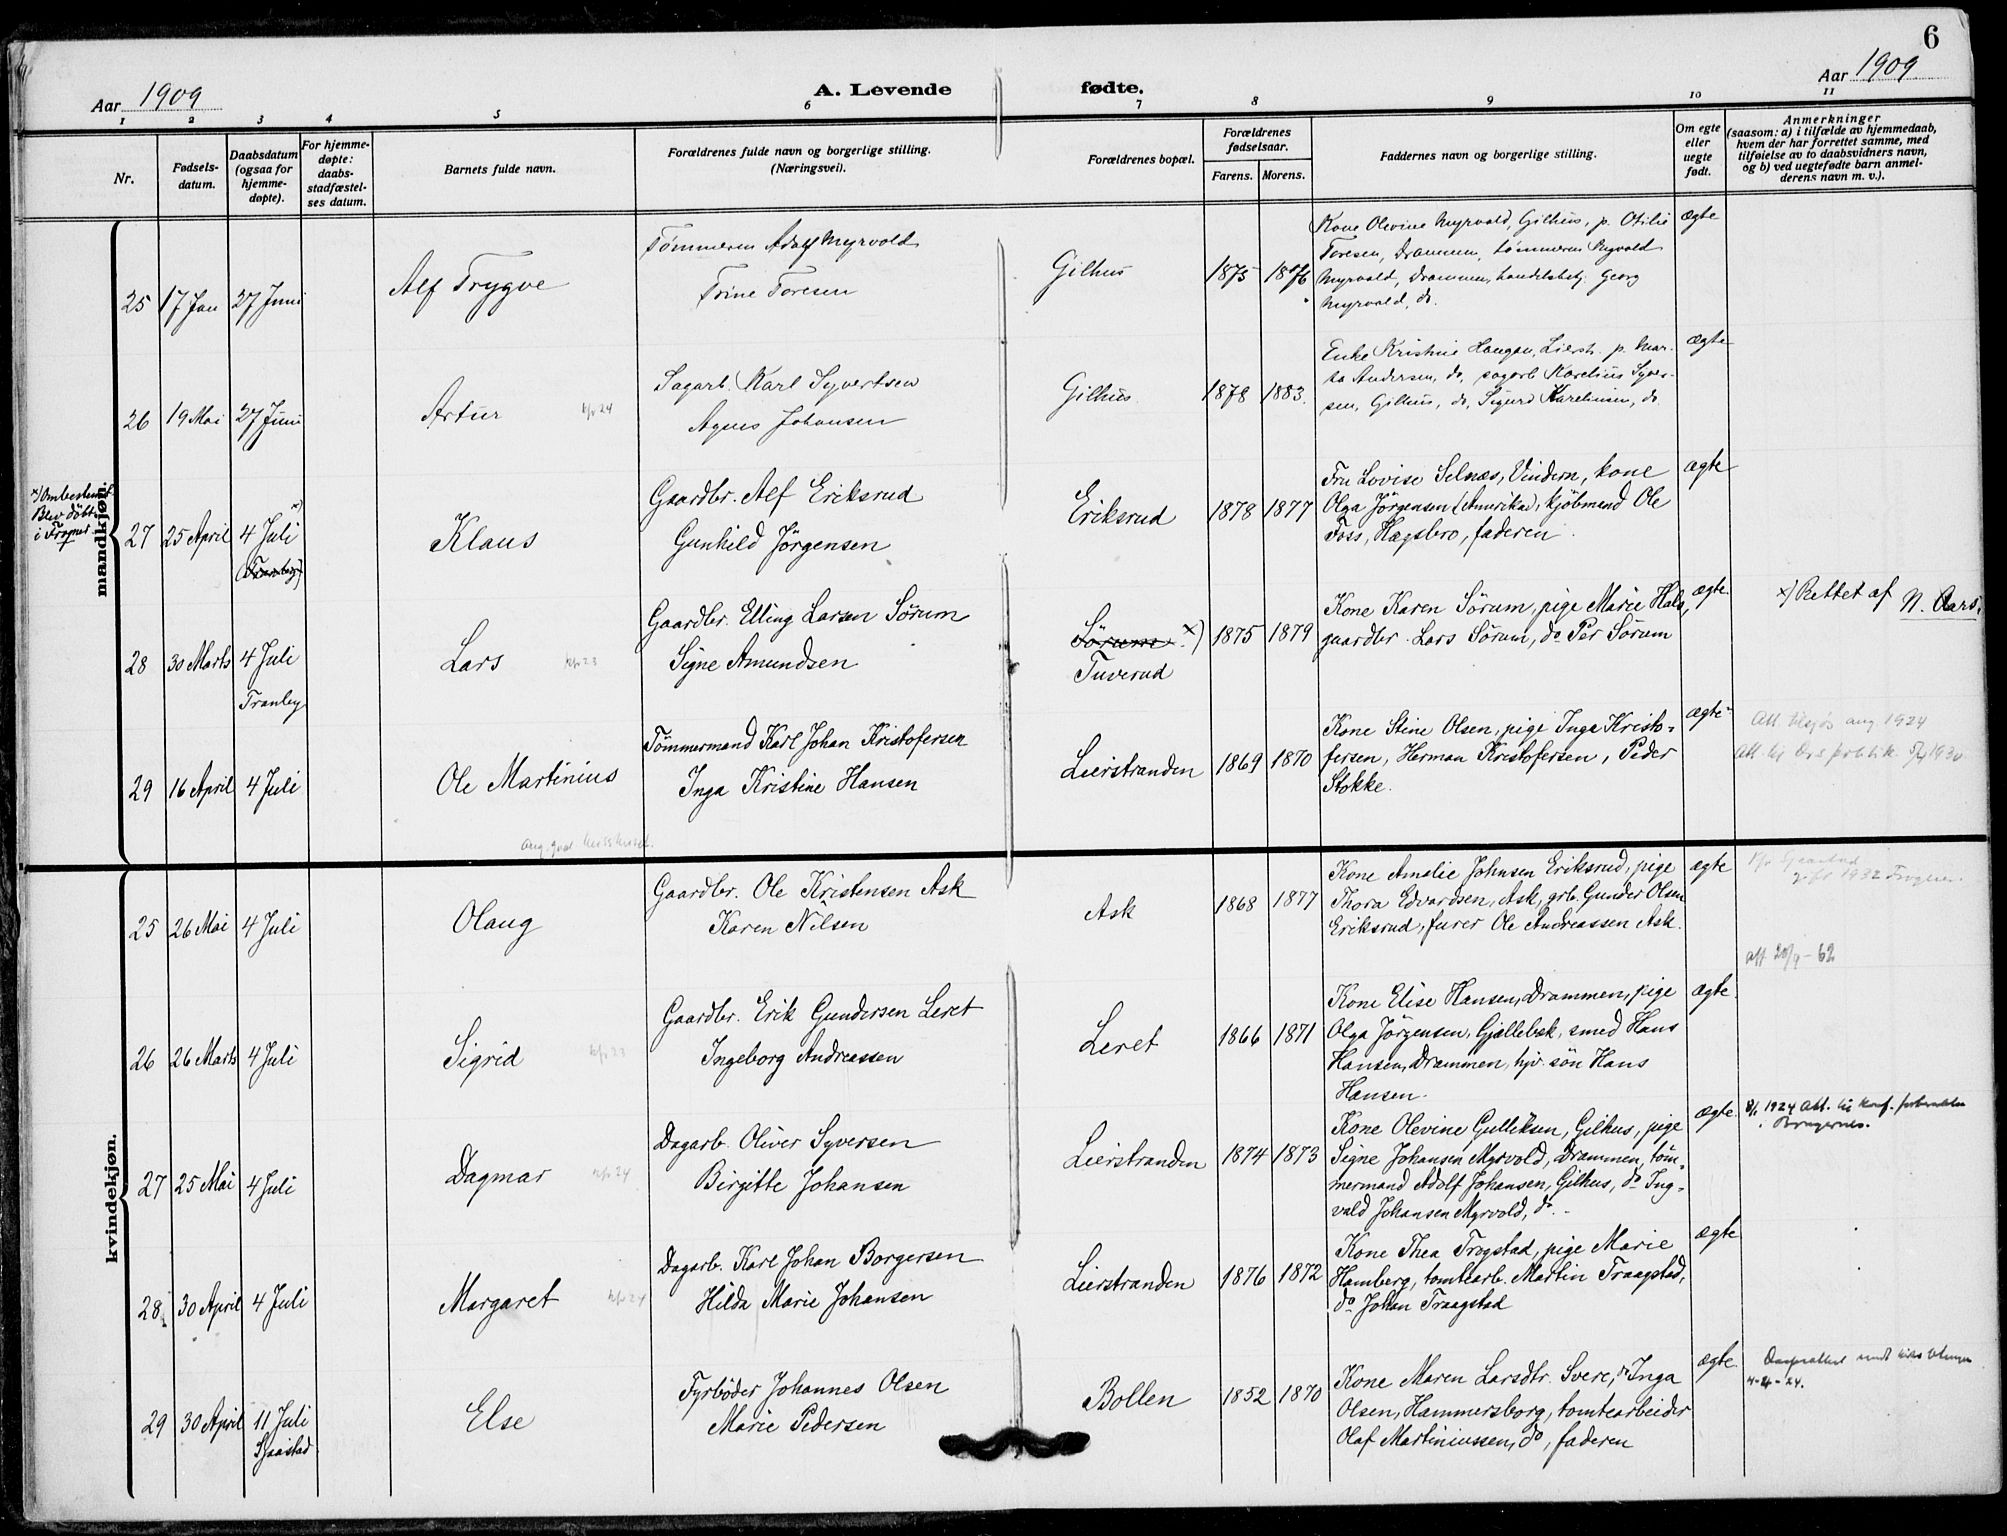 6
Aar 1909
A. Levende fødte.
Aar 1909
1 2 3 4 5 6 7 8 9 10 11
Nr.
Fødsels-
datum.
Daabsdatum
(ogsaa for
hjemme-
døpte).
For hjemme-
døpte:
daabs-
stadfæstel-
ses datum.
Barnets fulde navn.
Forældrenes fulde navn og borgerlige stilling.
(Næringsvei).
Forældrenes bopæl.
Forældrenes
fødselsaar.
Farens. Morens.
Faddernes navn og borgerlige stilling.
Om egte
eller
uegte
født.
Anmerkninger
(saasom: a) i tilfælde av hjemmedaab,
hvem der har forrettet samme, med
tilføielse av to daabsvidners navn,
og b) ved uegtefødte barn anmel-
derens navn m. v.).
mandkjøn.
25 17 Jan 27 Juni
Alf Trygve
Tømmerm Adolf Myrvold
Trine Toresen
Gilhus
1875 1876
Kone Olevine Myrvold, Gilhus, p. Otilie
Toresen, Drammen, tømmerm
Myrvold, Drammen, handelsbetj. Georg
Myrvold, do.
ægte
26 19 Mai 27 Juni
Artur
Sagarb. Karl Syvertsen
Agnes Johansen
Gilhus.
1878 1883.
Enke Kristine Haugan, Lierst. p. Mar-
ta Andersen, do, sagarb Karelius Syver-
sen, Gilhus, do, Sigurd Kareliusen, do
ægte
x) Omberammet
Blev döbt
i Frogner
27 25 April 4 Juli x)
(Tranby)
Klaus
Gaardbr. Alf Eriksrud
Gunhild Jörgensen
Eriksrud
1878 1877
Fru Lovise Selnæs, Vindern, kone
Olga Jörgensen (Amerika), kjöbmand Ole
Foss, Hagsbro, faderen.
ægte
28 30 Marts 4 Juli
Tranby
Lars
Gaardbr. Elling Larsen Sörum
Signe Amundsen
Sörum x)
Tuverud
1875 1879
Kone Karen Sörum, pige Marie Hals,
gaardbr. Lars Sörum, do Per Sörum
ægte
x) Rettet af N. Aars.
29 16 April 4 Juli
Ole Martinius
Tömmermand Karl Johan Kristofersen
Inga Kristine Hansen
Lierstranden
1869 1870
Kone Stine Olsen, pige Inga Kristo-
fersen, Herman Kristofersen, Peder
Stokke.
ægte
Att. aug 1924
kvindekjøn.
25 26 Mai 4 Juli
Olaug
Gaardbr. Ole Kristensen Ask
Karen Nilsen
Ask
1868 1877
Kone Amalie Johnsen Eriksrud, pige
Thora Edvardsen, Ask, grb. Gunder Olsen
Eriksrud, furer Ole Andreassen Ask.
ægte
1932 Frogner
att 20/9-62
26 26 Marts 4 Juli
Sigrid
Gaardbr. Erik Gundersen Leret
Ingeborg Andreassen
Leret
1866 1871
Kone Elise Hansen, Drammen, pige
Olga Jörgensen, Gjællebæk, smed Hans
Hansen, Drammen, hjv. sön Hans
Hansen.
ægte.
27 25 Mai 4 Juli
Dagmar
Dagarb. Oliver Syversen
Birgitte Johansen
Lierstranden
1874 1873
Kone Olevine Gulliksen, Gilhus, pige
Signe Johansen Myrvold, Drammen, töm-
mermand Adolf Johansen, Gilhus, do Ing-
vald Johansen Myrvold, do.
ægte
1924 Att. til konf.
Bragernes.
28 30 April 4 Juli
Margaret
Dagarb. Karl Johan Borgersen
Hilda Marie Johansen
Lierstranden
1876 1872
Kone Thea Trogstad, pige Marie
Hamberg, tomtearb. Martin Traagstad,
do Johan Traagstad
ægte
29 30 April 11 Juli
Sjaastad
Else
Fyrböder Johannes Olsen
Marie Pedersen
Bollen
1852 1870
Kone Maren Larsdtr. Svere, do Inga
Olsen, Hammersborg, tomtearbeider
Olaf Martiniussen, do, faderen
ægte
4-4-24.